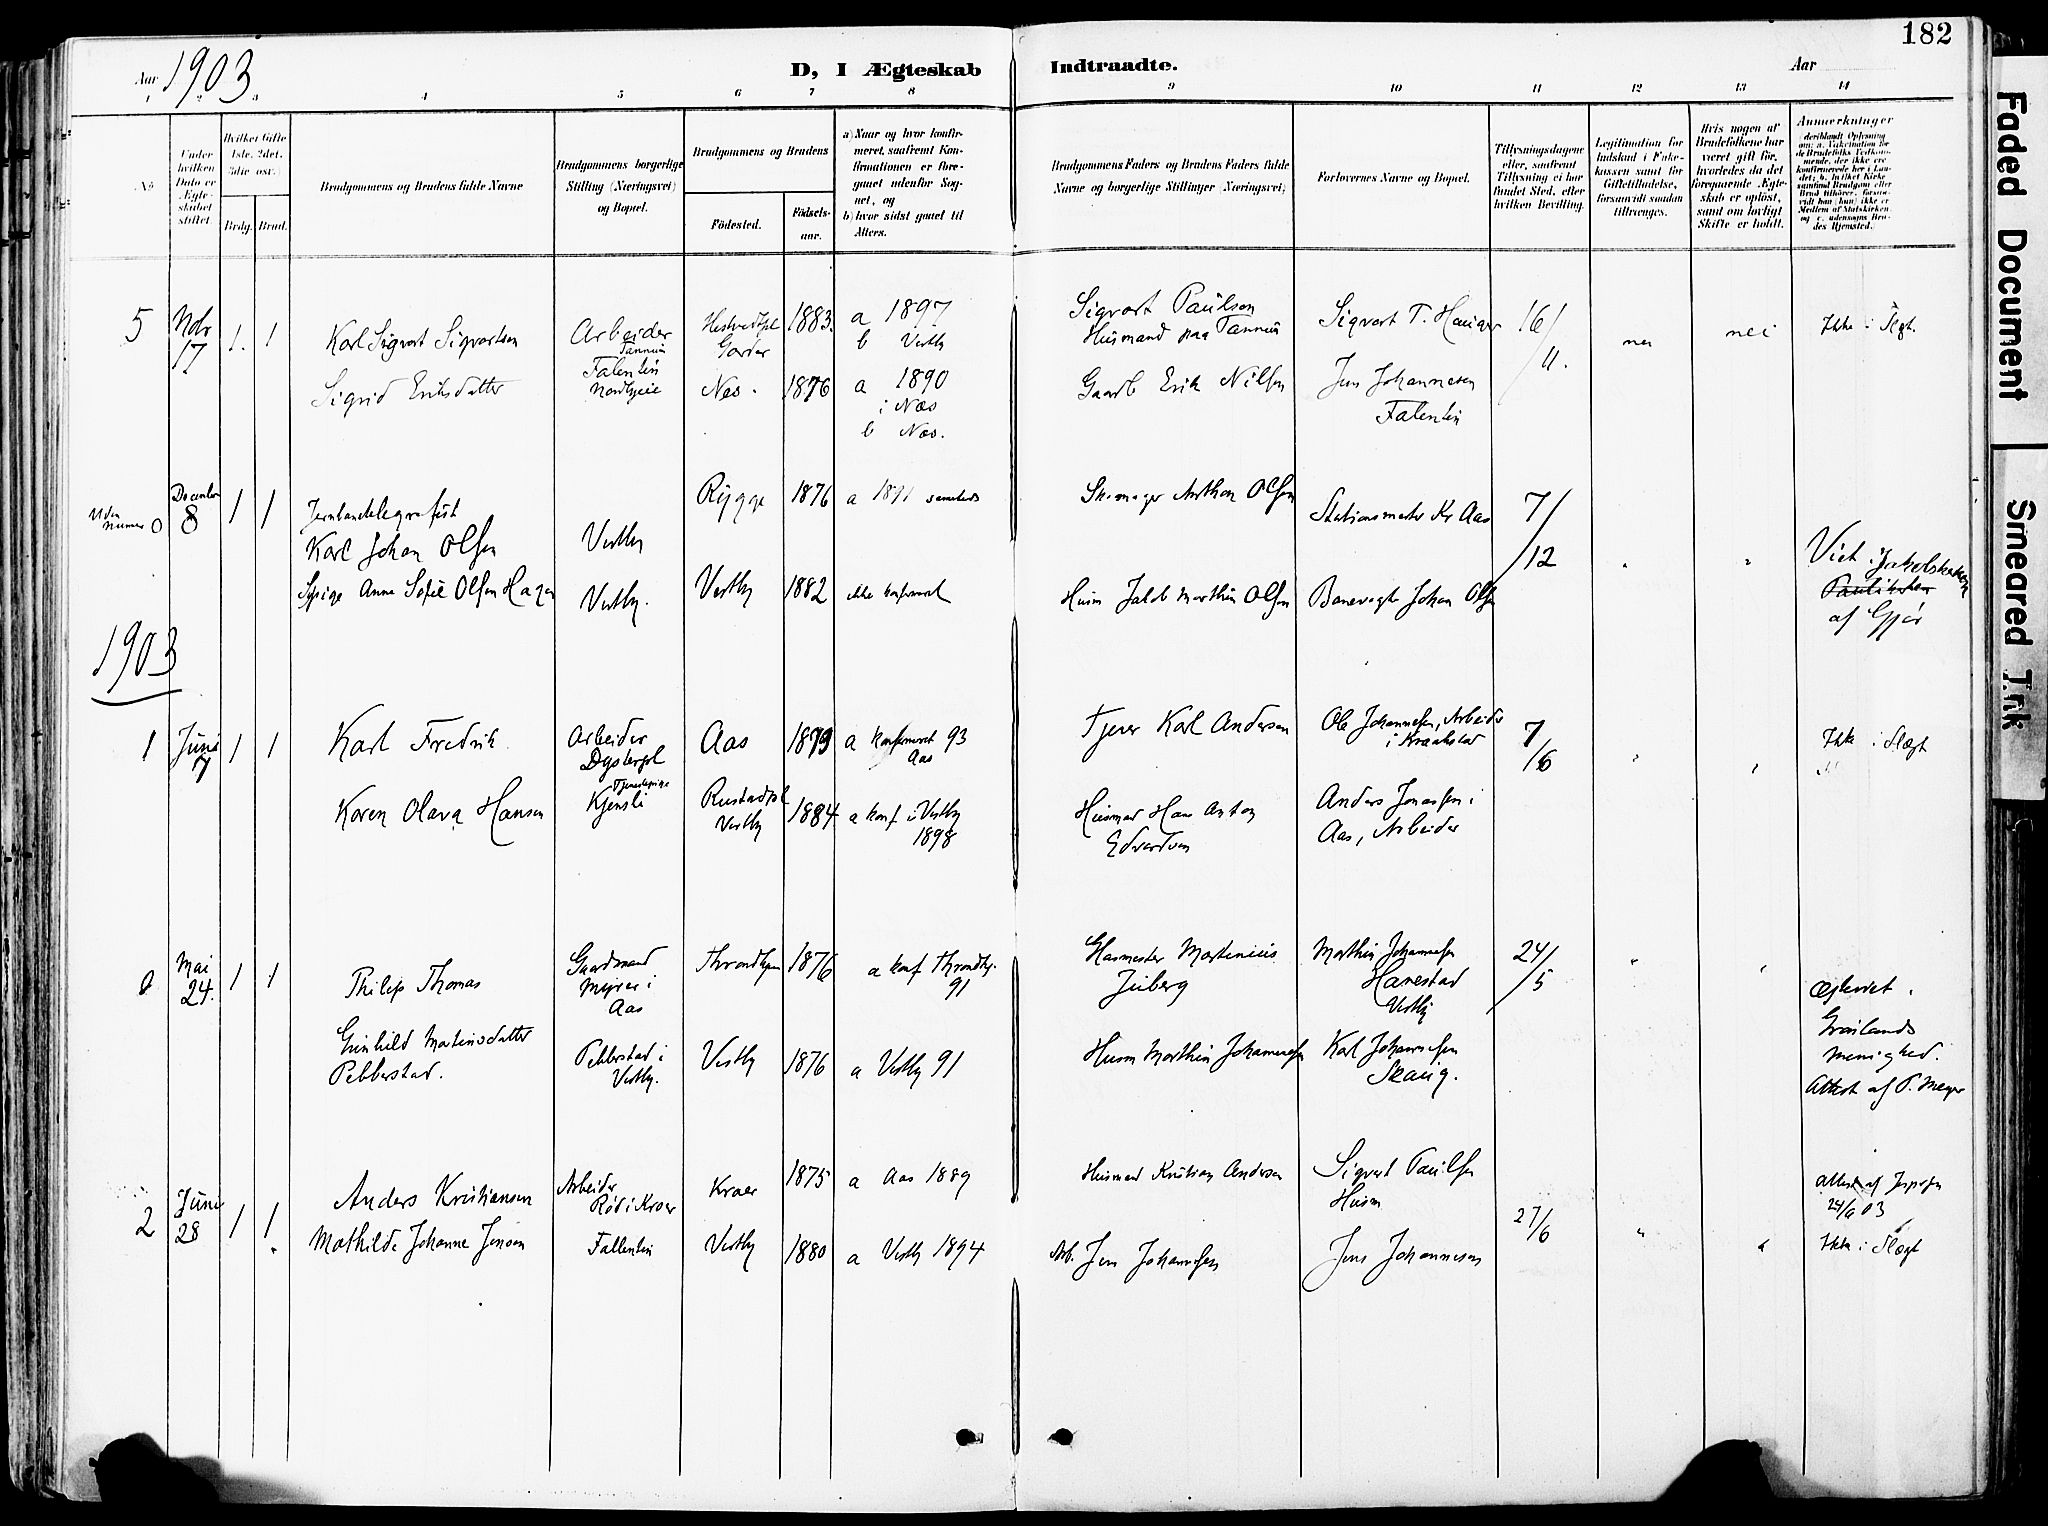 182
Aar 1903
D, I Ægteskab Indtraadte.
Aar
1 2 3 4 5 6 7 8 9 10 11 12 13 14
No
Under hvilken Dato er Ægteskabet stiftet.
Hvilket Gifte 1ste, 2det, 3die osv.)
Brdg. Brud.
Brudgommens og Brudens fulde Navne
Brudgommens borgerlige Stilling (Næringsvei) og Bopæl.
Brudgommens og Brudens
Födested.
Födselsaar.
a) Naar og hvor konfirmeret, saafremt Konfirmationen er foregaaet udenfor Sognet, og
b) hvor sidst gaaet til Alters.
Brudgommens Faders og Brudens Faders fulde Navne og borgerlige Stillinger (Næringsvei)
Forlovernes Navne og Bopæl.
Tillysningsdagene eller, saafremt Tillysning ei har fundet Sted, efter hvilken Bevilling.
Legitimation for Indskud i Enkekassen samt for Giftetilladelse, forsaavidt saadan tiltrænges.
Hvis nogen af Brudefolkene har været gift før, hvorledes da det foregaaende Ægteskab er opløst, samt om lovligt Skifte er holdt.
Anmerkninger
5
Nov 17
1. 1
Karl Sigvart Sigvartsen
Arbeider
Tannum
Falentin
Garder
1883.
a 1897
b Vestby
Sigvart Paulsen
Husmand paa Tannum
Sigvart T. Hauger
16/11.
nei
nei
Ikke i Slegt.
Sigrid Eriksdatter
Nordbyeie
Nes.
1876
a 1890
i Næs
b Næs.
Gaardb Erik Nilsen
Jens Johannesen
Falentin
Uden numer 0
December 8
1 1
Jernbanetelegrafist
Karl Johan Olsen
Vestby
Rygge
1876
a 1891 sammesteds
Skomager Anthon Olsen
Stationsmester Kr Aas
7/12
"
"
Viet i Jakobskirken
af Gjør
Sypige Anne Sofie Olsen Hagen
Vestby.
Vestby
1882
ikke konfirmeret
Husm Jakob Marthin Olsen
Banevogte Johan Olsen
1903
1
Juni 7
1 1
Karl Fredrik
Arbeider
Dysterpl
Aas
1879
a konfirmeret 93
Aas
Tjener Karl Andersen
Ole Johannesen, Arbeider
i Kraakstad
7/6
"
"
Ikke i Slægt
Karen Olava Hansen
Tjenestepige
Kjensli
Rustadpl
Vestby
1884
a konf i Vestby
1898
Husmand Hans Anton
Edvardsen
Anders Jonassen i
Aas, Arbeider
0
Mai 24.
1 1
Philip Thomas
Gaardmand
Myrer i
Aas
Throndhjem
1876
a konf Throndhj.
91
Martinius
Juberg
Marthin Johannesen
Hanestad
Vestby
24/5
"
"
Gunhild Martinsdatter
Pebberstad.
Pebberstad i
Vestby.
Vestby
1876
a Vestby 91
Husm Marthin Johannesen
Karl Johannesen
Skaug.
menighed.
Attest af P. Meyer
2
Juni 28
1 1
Anders Kristiansen
Arbeider
Rød i Kroer
Kroer
1875
a Aas 1889
Husmand Kristian Andersen
Sigvart Paulsen
Husm
27/6
"
"
Attest af
Ikke i Slægt
Mathilde Johanne Jensen
Fallentin
Vestby
1880
a Vestby 1894
Arb. Jens Johannesen
Jens Johannesen
Faded Document
Smeared Ink